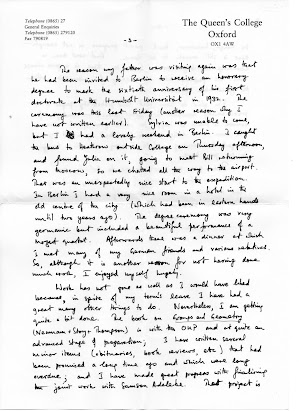 Telephone (0865) 27
General Enquiries
Telephone (0865) 279120
Fax 790819
The Queen's College
Oxford
OX1 4AW
- 3 -
The reason my father was visiting again was that
he had been invited to Berlin to receive an honorary
degree to mark the sixtieth anniversary of his first
doctorate at the Humboldt Universität in 1932. The
ceremony was this last Friday (another reason why I
have not written earlier). Sylvia was unable to come,
but I had a lovely weekend in Berlin. I caught
the bus to Heathrow outside College on Thursday afternoon,
and found Julia on it, going to meet Bill returning
from Moscow, so we chatted all the way to the airport.
That was an unexpectedly nice start to the expedition.
In Berlin I had a very nice room in a hotel in the
old centre of the city (which had been in eastern hands
until two years ago). The degree ceremony was very
germanic but included a beautiful performance of a
Mozart quartet. Afterwards there was a dinner at which
I met many of my German friends and various relatives.
So, although it is another reason for not having done
much work, I enjoyed myself hugely.
Work has not gone as well as I would have liked
because, in spite of my term's leave I have had a
great many other things to do. Nevertheless, I am getting
quite a bit done. The book on Groups and Geometry
(Neumann + Stoy + Thompson) is with the OUP and at quite an
advanced stage of preparation; I have written several
minor items (obituaries, book reviews, etc) that had
been promised a long time ago and which were long
overdue; and I have made great progress with finalising
joint work with Samson Adeleke. That project is